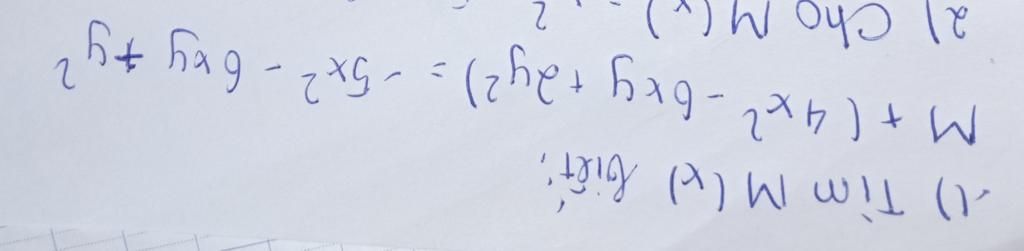 1) Tìm M(x) biết:
M + (4x² - 6xy + 2y²) = -5x² - 6xy + y²
2) Cho M(x) =